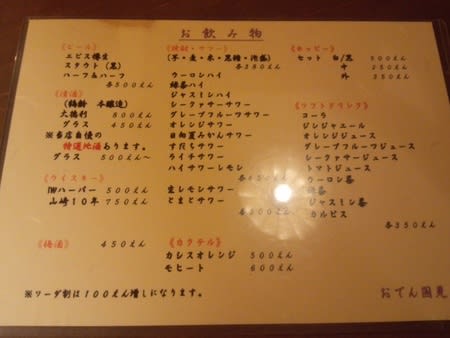 お飲み物
《ビール》
エビス樽生
スタウト(黒)
ハーフ&ハーフ
各500えん
《清酒》
(鶴齢 本醸造)
大徳利 800えん
グラス 450えん
※当店自慢の
特選地酒あります。
グラス 500えん~
《ウイスキー》
IWハーパー 500えん
山崎10年 750えん
《梅酒》 450えん
《焼酎・サワー》
(芋・麦・米・黒糖・泡盛)
各350えん
ウーロンハイ
緑茶ハイ
ジャスミンハイ
シークァサーサワー
グレープフルーツサワー
オレンジサワー
日向夏みかんサワー
すだちサワー
ライチサワー
ハイサワーレモン
生レモンサワー
とまとサワー
《カクテル》
カシスオレンジ 500えん
モヒート 600えん
《ホッピー》
セット 白/黒 500えん
中 250えん
外 350えん
《ソフトドリンク》
コーラ
ジンジャエール
オレンジジュース
グレープフルーツジュース
シークァサージュース
トマトジュース
ウーロン茶
緑茶
ジャスミン茶
カルピス
各350えん
※ソーダ割は100えん増しになります。
おでん国見